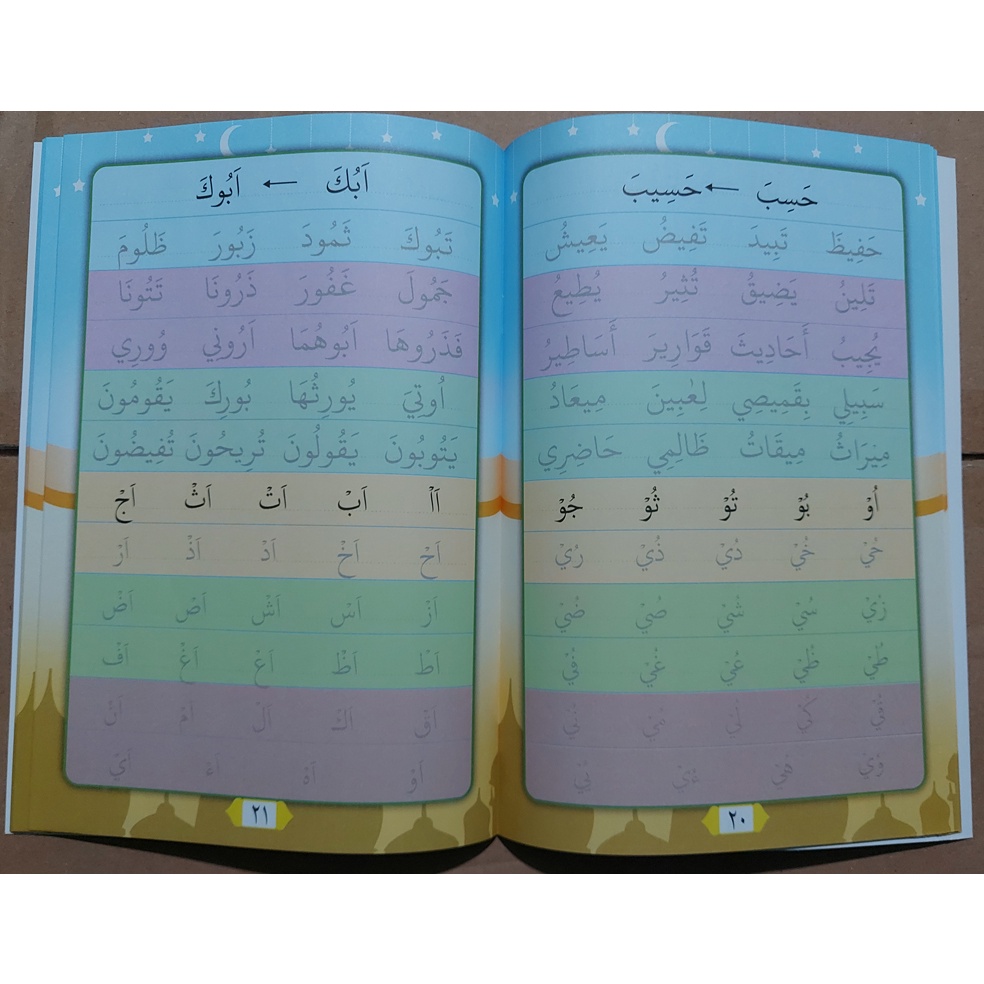 حَسِبَ ← حَسِيبَ
حَفِيظَ تَبِيدَ تَفِيضُ يَعِيشُ
تَلِينُ يَضِيقُ تُثِيرُ يُطِيعُ
يُجِيبُ أَحَادِيثَ قَوَارِيرَ أَسَاطِيرُ
سَبِيلِي بِقَمِيصِي لِعٰبِينَ مِيعَادُ
مِيْرَاثُ مِيقَاتُ ظَالِمِي حَاضِرِي
اُوْ بُوْ تُوْ ثُوْ جُوْ
حُيْ خُيْ دُيْ ذُيْ رُيْ
زُيْ سُيْ شُيْ صُيْ ضُيْ
طُيْ ظُيْ عُيْ غُيْ فُيْ
٢٠
اَبُكَ ← اَبُوكَ
تَبُوكَ ثَمُودَ زَبُورَ ظَلُومَ
حَمُولَ غَفُورَ ذَرُونَا
فَذَرُوهَا اَبُوهُمَا اَرُونِي وُورِي
اُوتِيَ يُورِثُهَا بُورِكَ يَقُومُونَ
يَتُوبُونَ يَقُولُونَ تُرِيحُونَ تُفِيضُونَ
اَاْ اَبْ اَتْ اَثْ اَجْ
اَحْ اَخْ اَدْ اَذْ اَرْ
اَزْ اَسْ اَشْ اَصْ اَضْ
اَطْ اَظْ اَعْ اَغْ اَفْ
اَقْ اَكْ اَلْ اَمْ اَنْ
اَوْ اَهْ اَءْ اَيْ
٢١